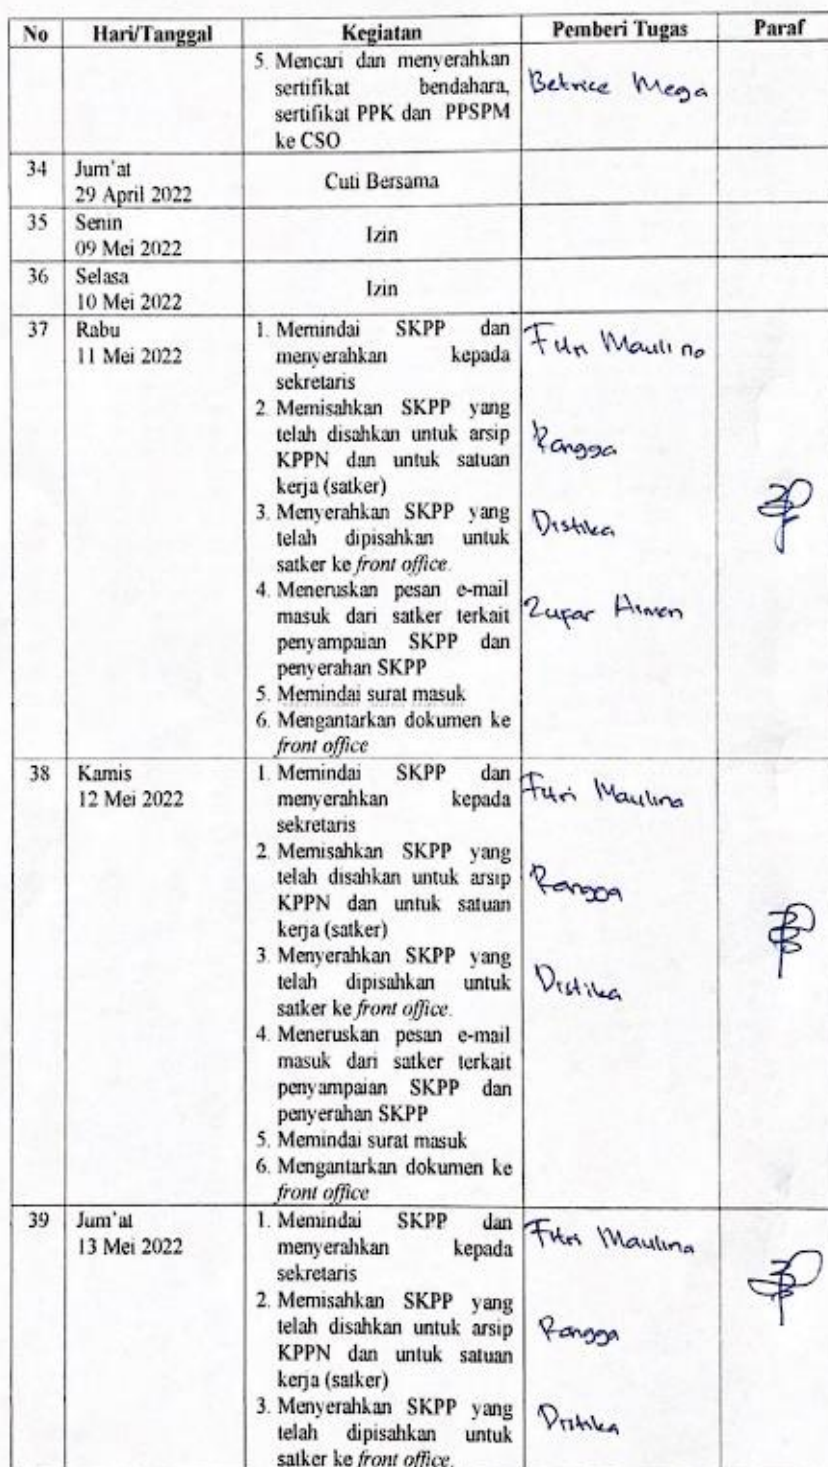 No Hari/Tanggal Kegiatan Pemberi Tugas Paraf
5. Mencari dan menyerahkan
sertifikat bendahara,
sertifikat PPK dan PPSPM
ke CSO
Betrice Mega
34 Jum'at
29 April 2022
Cuti Bersama
35 Senin
09 Mei 2022
Izin
36 Selasa
10 Mei 2022
Izin
37 Rabu
11 Mei 2022
1. Memindai SKPP dan
menyerahkan kepada
sekretaris
2. Memisahkan SKPP yang
telah disahkan untuk arsip
KPPN dan untuk satuan
kerja (satker)
3. Menyerahkan SKPP yang
telah dipisahkan untuk
satker ke front office.
4. Meneruskan pesan e-mail
masuk dari satker terkait
penyampaian SKPP dan
penyerahan SKPP
5. Memindai surat masuk
6. Mengantarkan dokumen ke
front office
Fitri Maulina
Rangga
Distika
38 Kamis
12 Mei 2022
1. Memindai SKPP dan
menyerahkan kepada
sekretaris
2. Memisahkan SKPP yang
telah disahkan untuk arsip
KPPN dan untuk satuan
kerja (satker)
3. Menyerahkan SKPP yang
telah dipisahkan untuk
satker ke front office.
4. Meneruskan pesan e-mail
masuk dari satker terkait
penyampaian SKPP dan
penyerahan SKPP
5. Memindai surat masuk
6. Mengantarkan dokumen ke
front office
Fitri Maulina
Rangga
Distika
39 Jum'at
13 Mei 2022
1. Memindai SKPP dan
menyerahkan kepada
sekretaris
2. Memisahkan SKPP yang
telah disahkan untuk arsip
KPPN dan untuk satuan
kerja (satker)
3. Menyerahkan SKPP yang
telah dipisahkan untuk
satker ke front office.
Fitri Maulina
Rangga
Distika